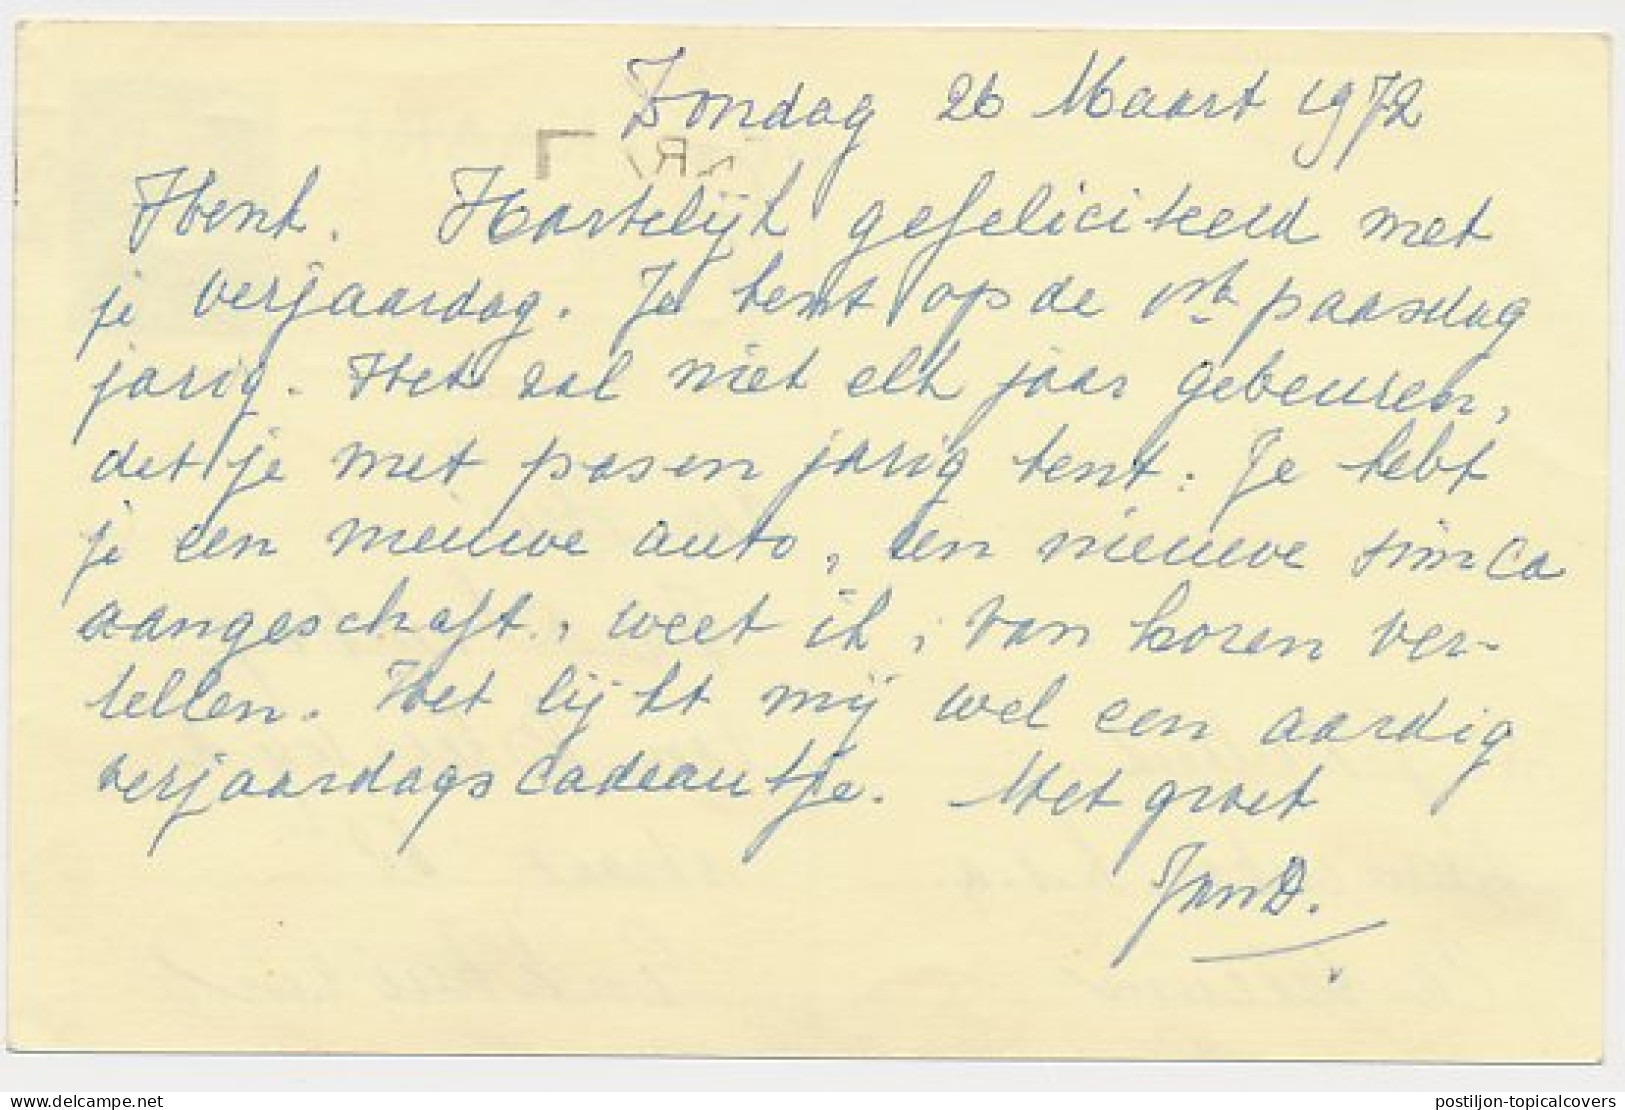 Zondag 26 Maart 1972
Henk. Hartelijk gefeliciteerd met
je verjaardag. Je bent op de 1ste paasdag
jarig. Het zal niet elk jaar gebeuren,
det je met pasen jarig bent. Je hebt
je een nieuwe auto, een nieuwe simca
aangeschaft, weet ik, van horen ver-
tellen. Het lijkt mij wel een aardig
verjaardagscadeautje. Met groet
Jan D.
postiljon-topicalcovers
www.delcampe.net